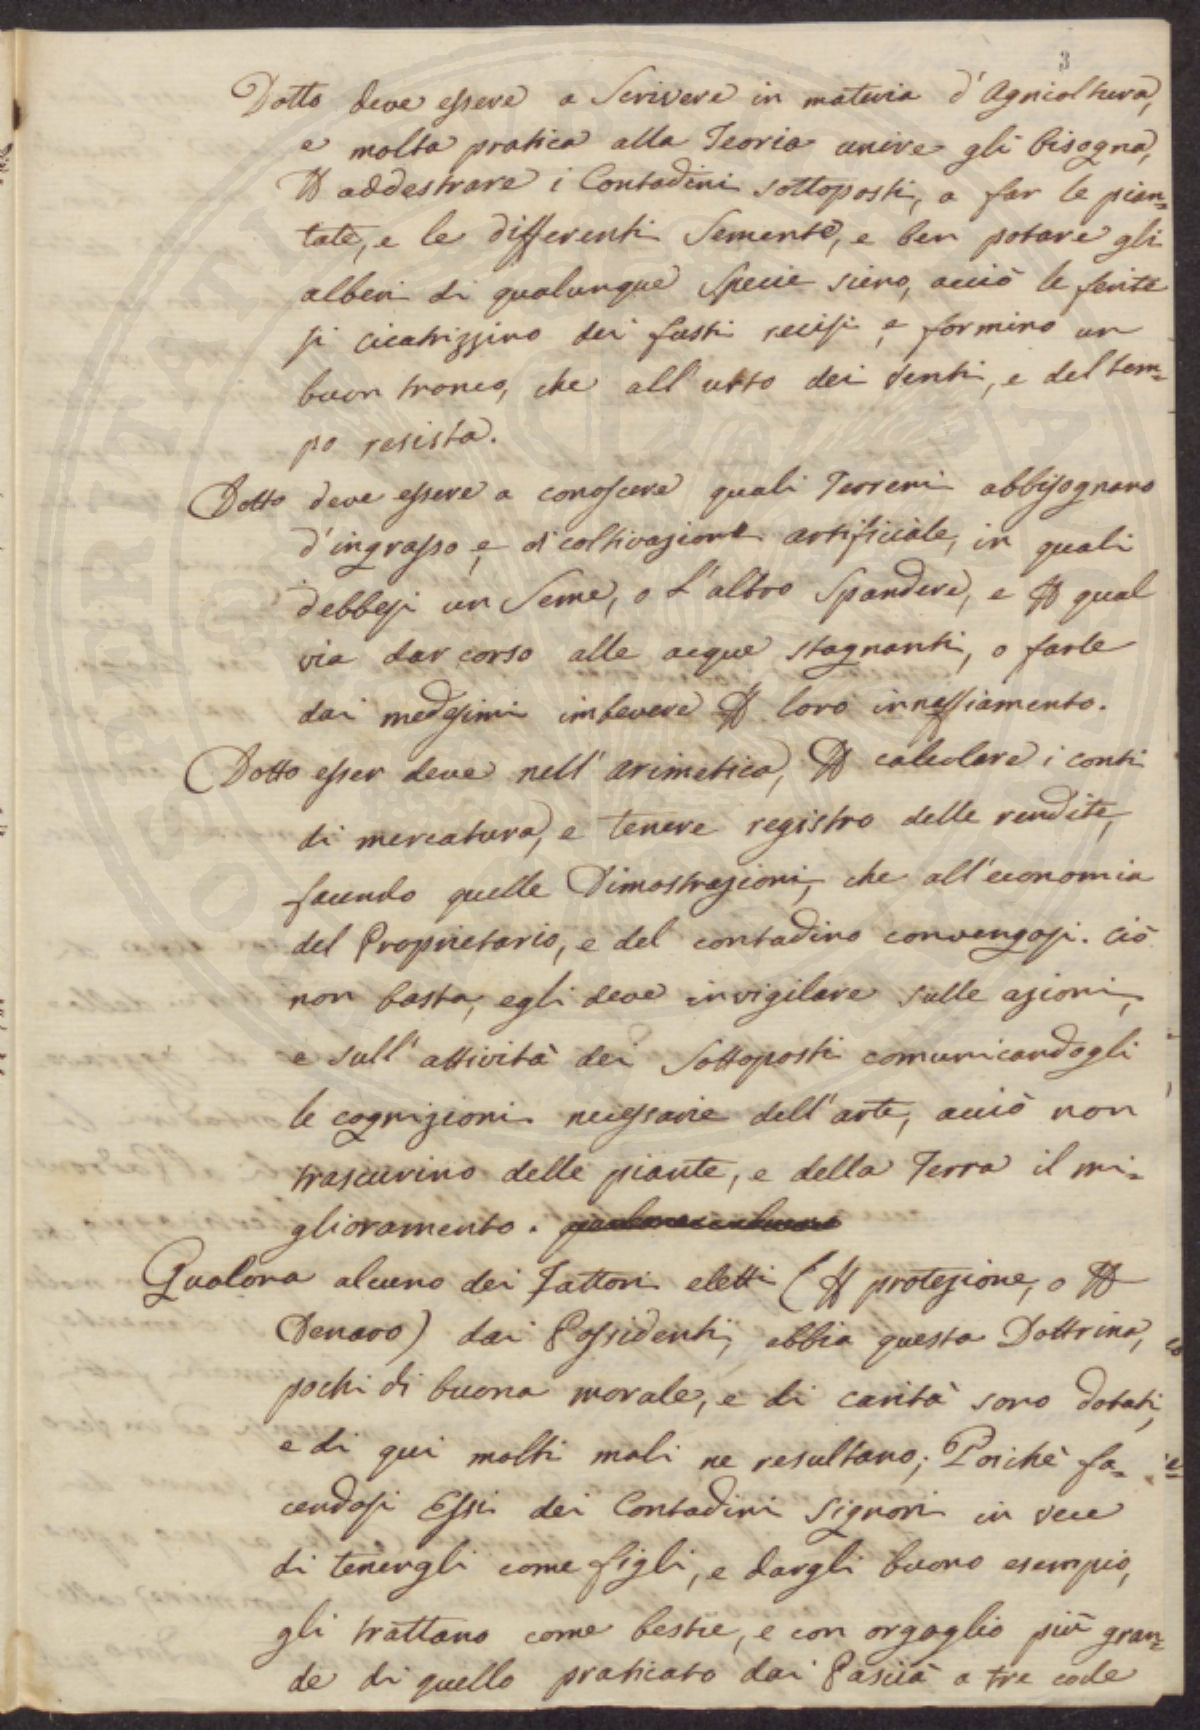 3
Dotto deve essere a Scrivere in materia d'Agricoltura,
e molta pratica alla Teoria unire gli bisogna,
P addestrare i Contadini sottoposti, a far le pian=
tate, e le differenti Semente, e ben potare gli
alberi di qualunque Specie sieno, acciò le ferite
si cicatrizzino dei fusti recisi, e formino un
buon tronco, che all'urto dei Venti, e del tem=
po resista.
Dotto deve essere a conoscere quali Terreni abbisognano
d'ingrasso, e di coltivazione artificiale, in quali
debbesi un Seme, o L'altro Spandere, e P qual
via dar corso alle acque stagnanti, o farle
dai medesimi imbevere P loro innaffiamento.
Dotto esser deve nell'arimetica, P calcolare i conti
di mercatura, e tenere registro delle rendite,
facendo quelle Dimostrazioni, che all'economia
del Proprietario, e del contadino convengasi. Ciò
non basta, egli deve invigilare sulle azioni,
e sull'attività dei Sottoposti comunicandogli
le cognizioni necessarie dell'arte, acciò non
trascurino delle piante, e della Terra il mi=
glioramento.
Qualora alcuno dei Fattori eletti (P protezione, o P
Denaro) dai Possidenti, abbia questa Dottrina,
pochi di buona morale, e di carità sono dotati,
e di qui molti mali ne resultano; Poichè fa=
cendosi Essi dei Contadini Signori in vece
di tenergli come figli, e dargli buono esempio,
gli trattano come bestie, e con orgoglio più gran=
de di quello praticato dai Pascià a tre code